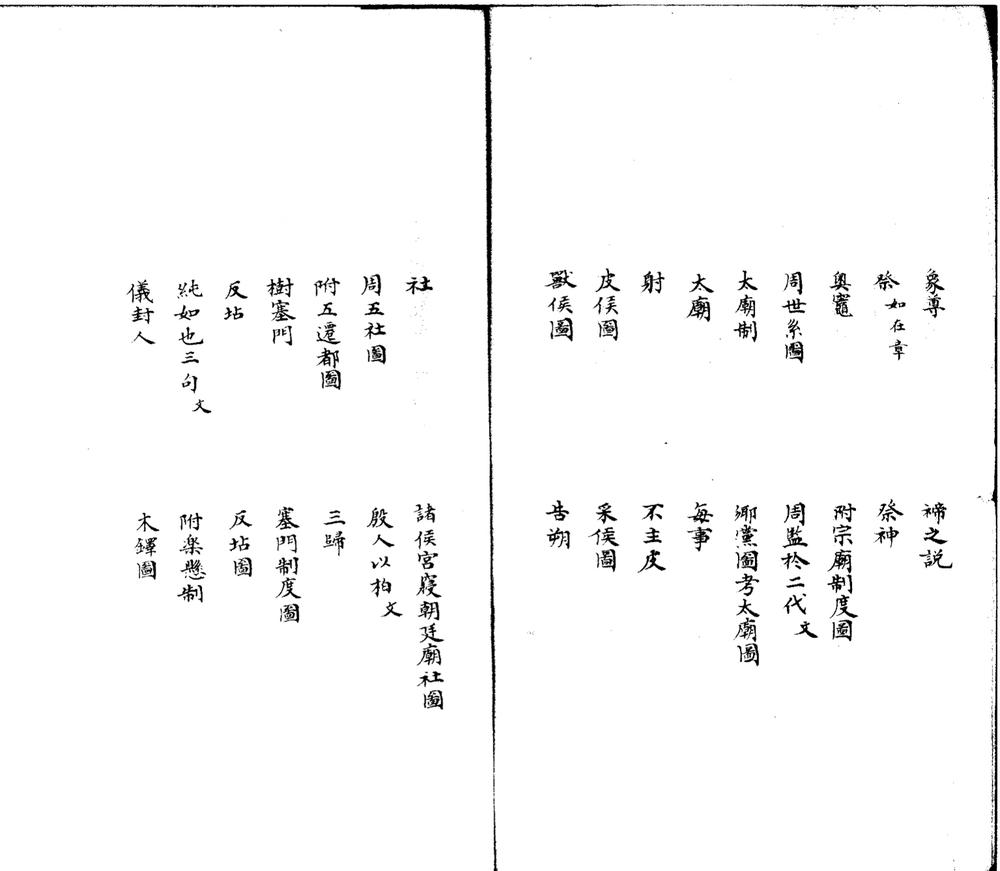 象尊
禘之説
祭如在章
祭神
奥竈
附宗廟制度圖
周世系圖
周監於二代文
太廟制
鄉黨圖考太廟圖
太廟
每事
射
不主皮
皮侯圖
采侯圖
獸侯圖
告朔
社
諸侯宮寢朝廷廟社圖
周五社圖
殷人以柏文
附五遷都圖
三歸
樹塞門
塞門制度圖
反坫
反坫圖
純如也三句文
附楽懸制
儀封人
木鐸圖